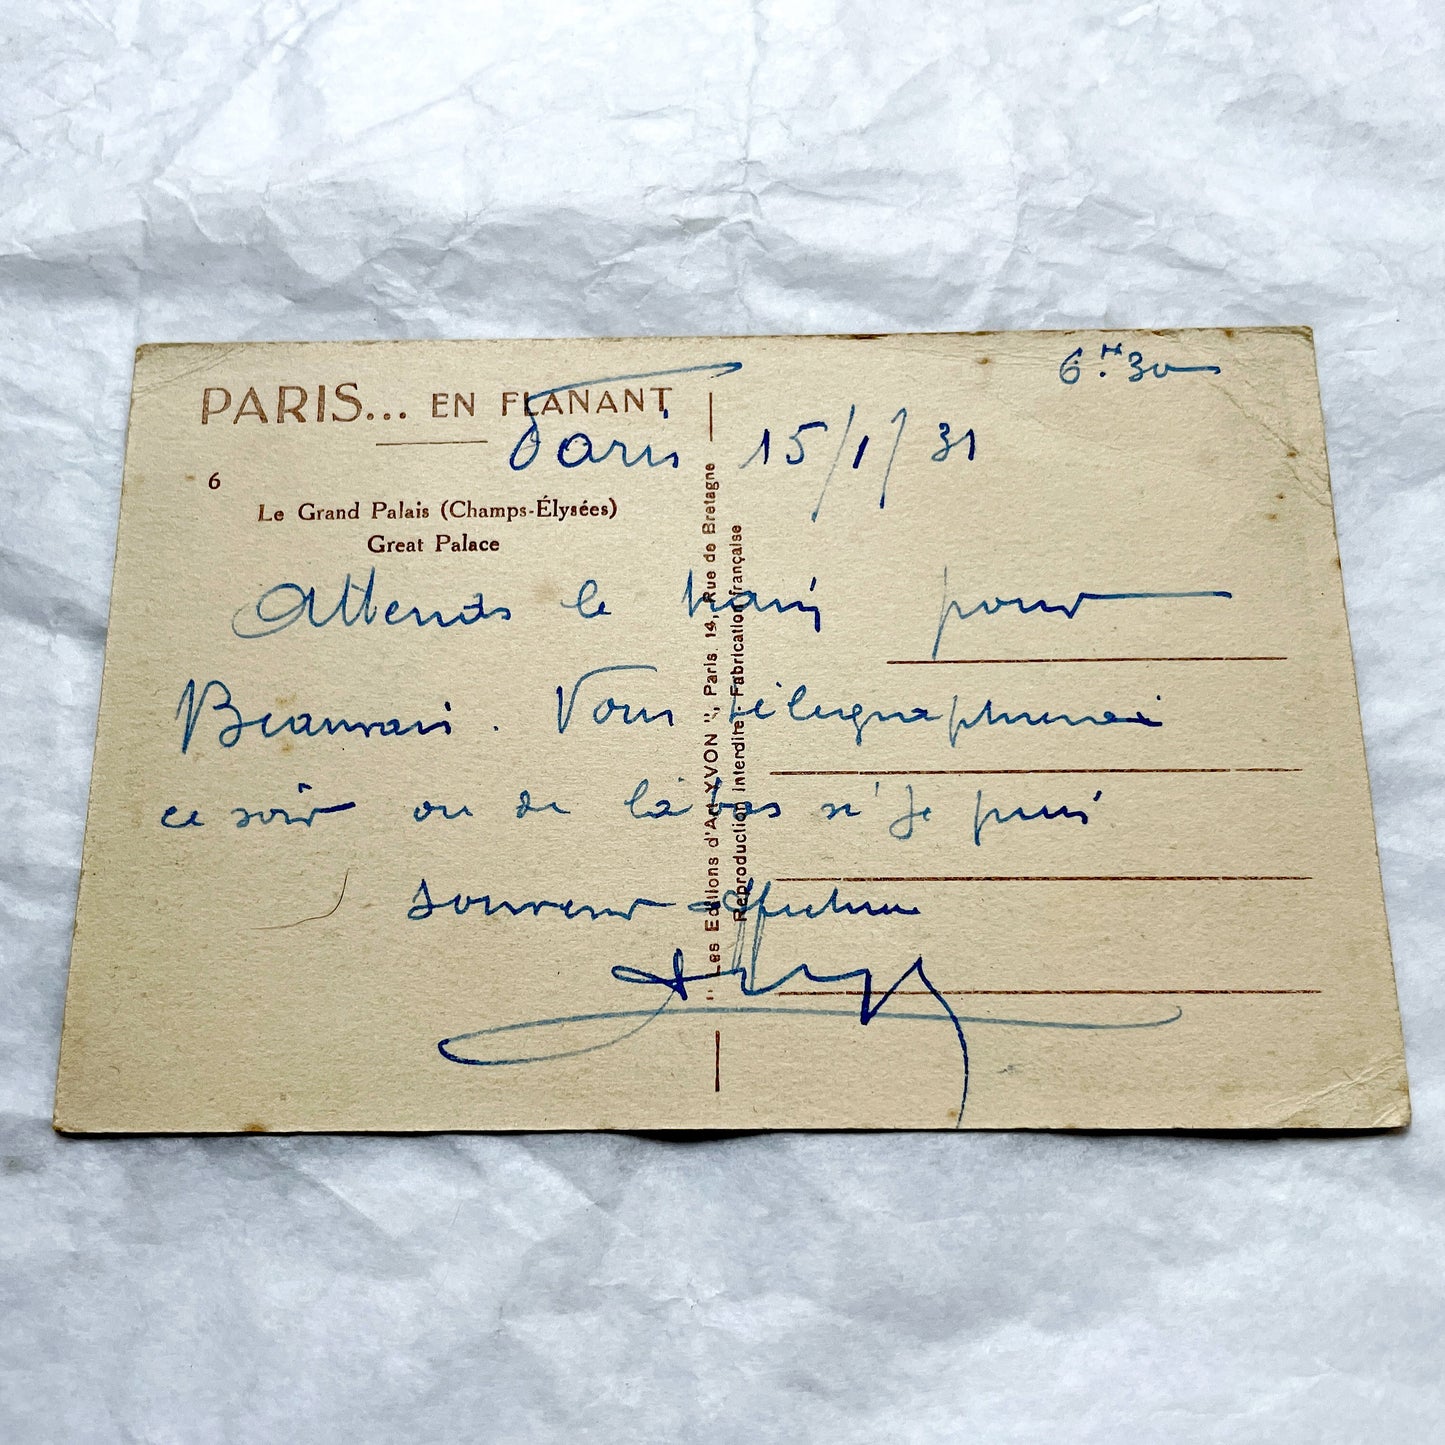 PARIS... EN FLANANT
6
Le Grand Palais (Champs-Élysées)
Great Palace
"Les Editions d'Art YVON", Paris. 14, Rue de Bretagne
Reproduction interdite. Fabrication française
6.H 30
Paris 15/1/31
Attends le train pour
Beauvais. Vous télégraphierai
ce soir ou de là bas si je puis
souvenir affectueux